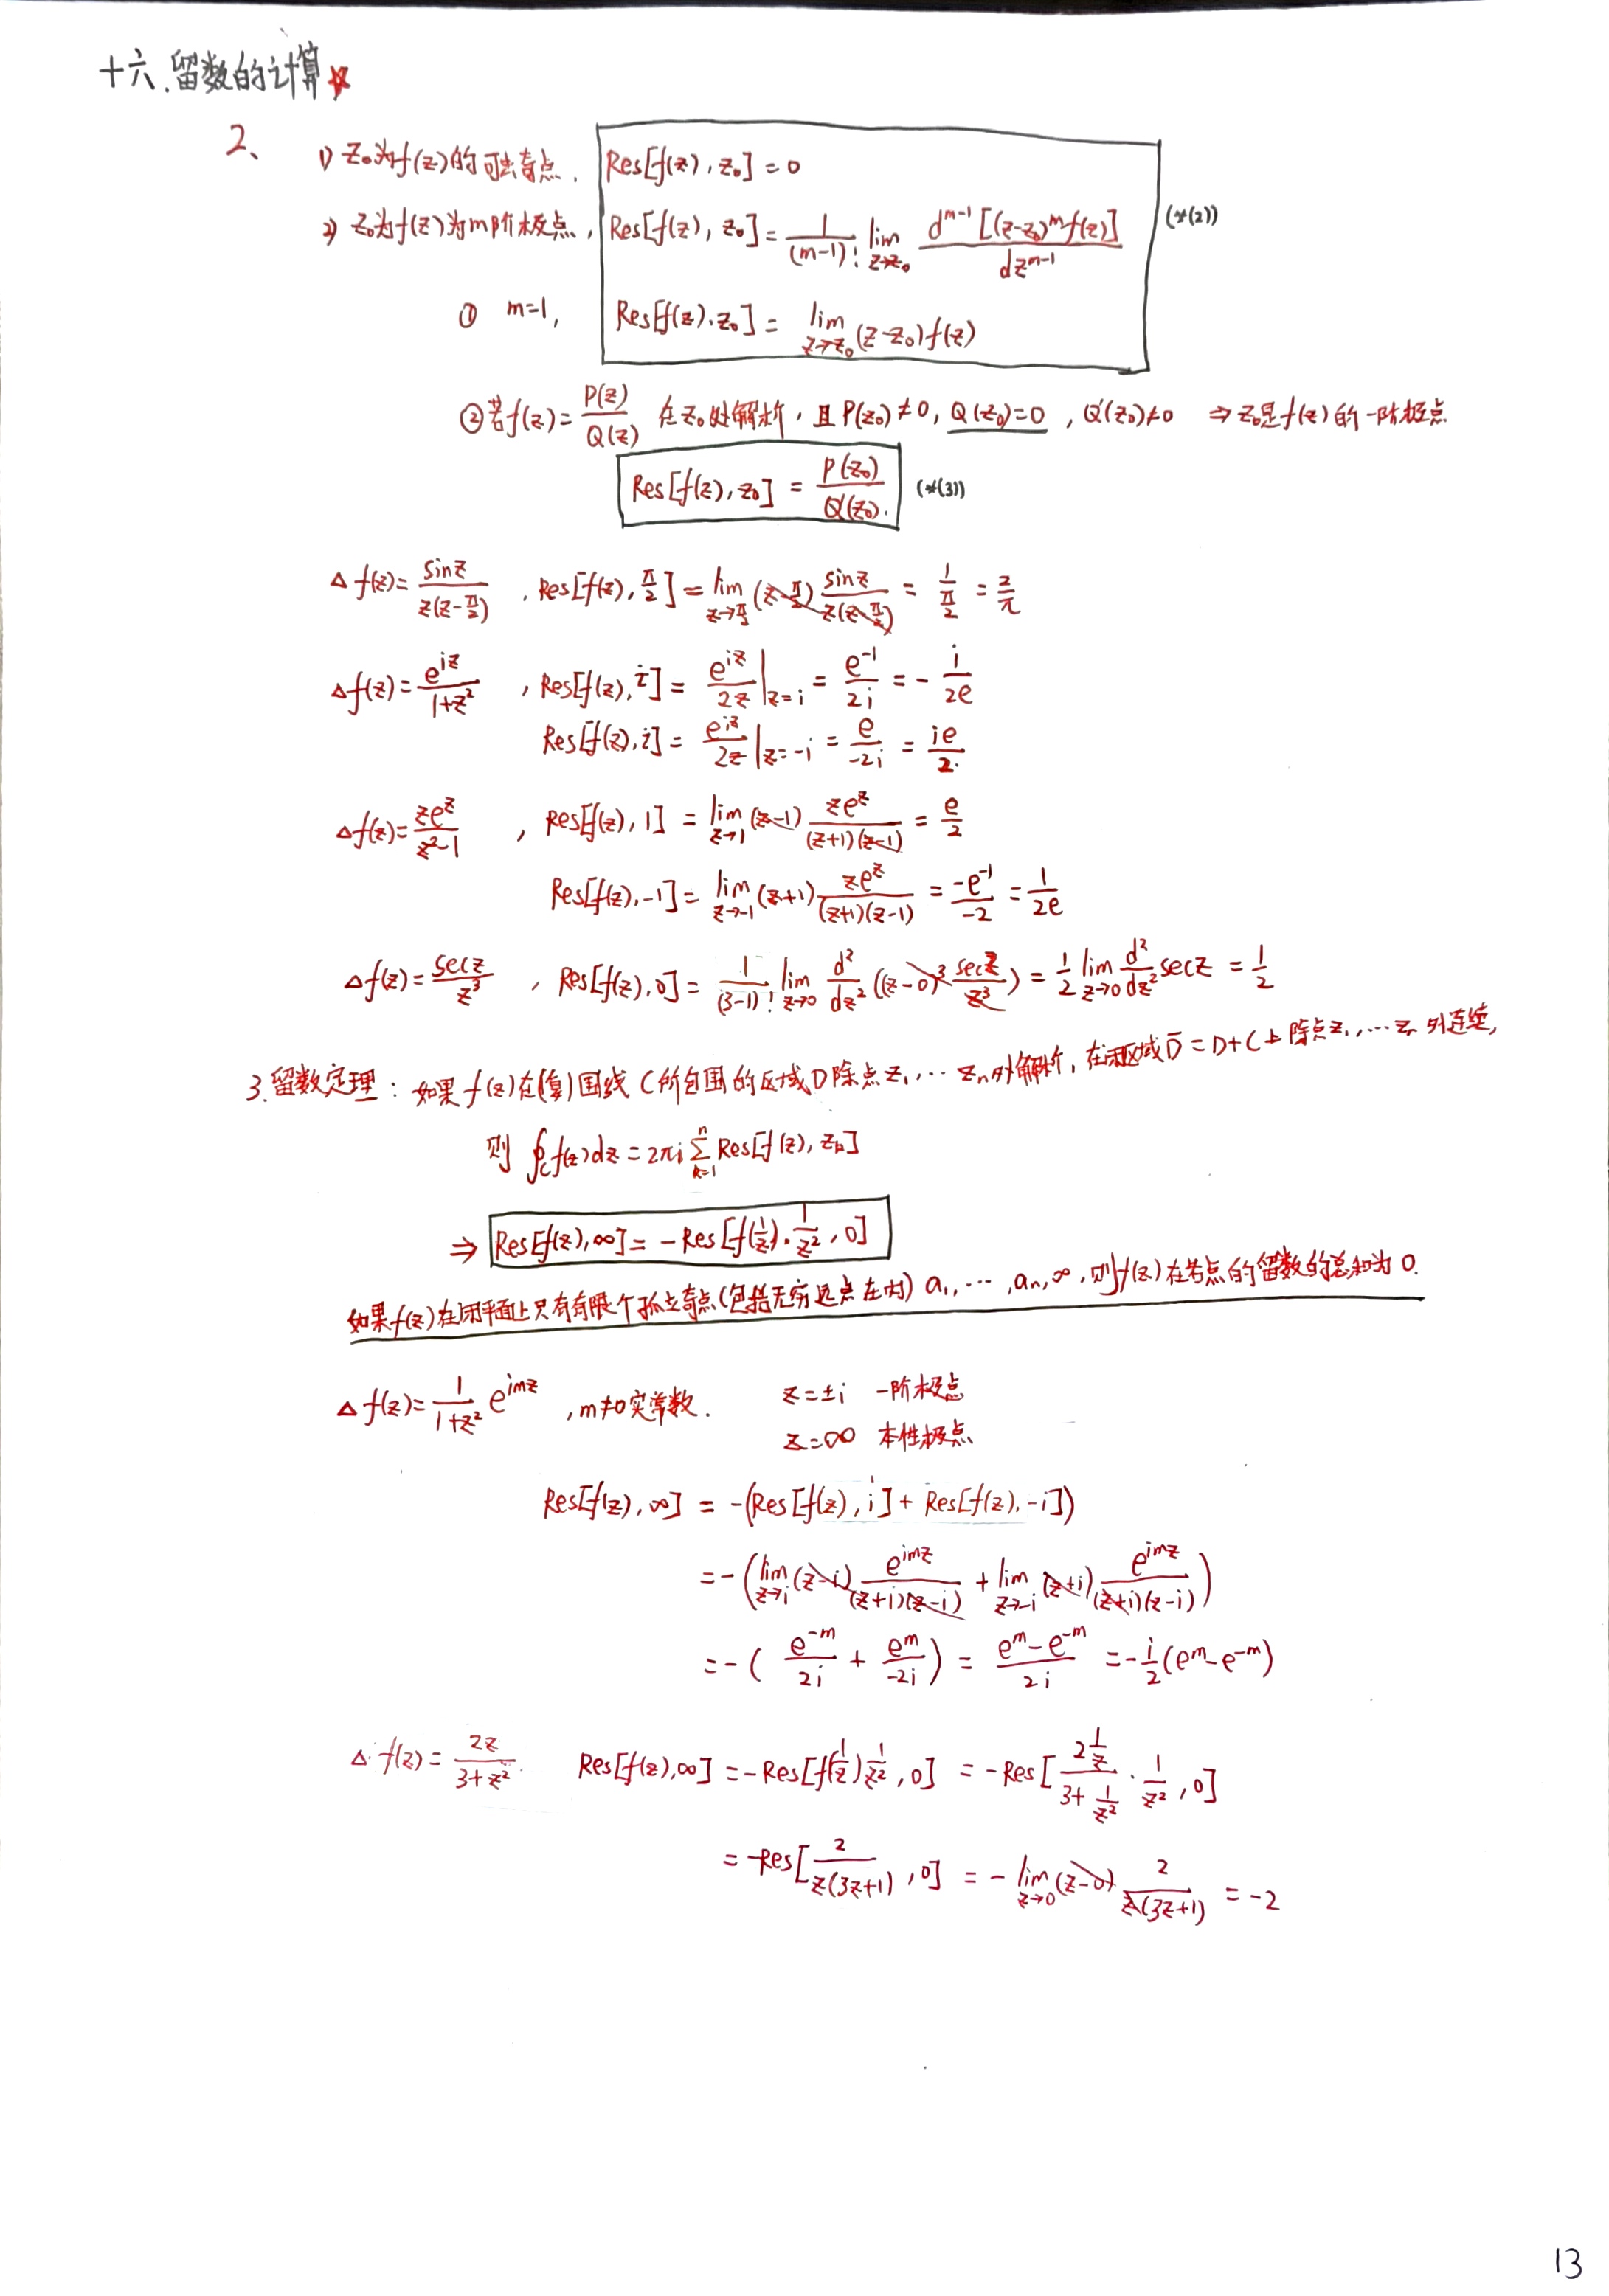 十六.留数的计算☆
2、 1) z₀为f(z)的可去奇点. Res[f(z), z₀] = 0
2) z₀为f(z)为m阶极点, Res[f(z), z₀] = \frac{1}{(m-1)!} \lim_{z→z₀} \frac{d^{m-1}[(z-z₀)^m f(z)]}{dz^{m-1}} (*(2))
① m=1, Res[f(z), z₀] = \lim_{z→z₀} (z-z₀)f(z)
②若f(z) = \frac{P(z)}{Q(z)} 在z₀处解析, 且P(z₀)≠0, Q(z₀)=0, Q'(z₀)≠0 ⇒ z₀是f(z)的一阶极点
Res[f(z), z₀] = \frac{P(z₀)}{Q'(z₀)}. (*(3))
△ f(z) = \frac{sinz}{z(z-\frac{π}{2})}, Res[f(z), \frac{π}{2}] = \lim_{z→\frac{π}{2}} (z-\frac{π}{2}) \frac{sinz}{z(z-\frac{π}{2})} = \frac{1}{\frac{π}{2}} = \frac{2}{π}
△ f(z) = \frac{e^{iz}}{1+z²}, Res[f(z), i] = \frac{e^{iz}}{2z}|_{z=i} = \frac{e^{-1}}{2i} = -\frac{i}{2e}
Res[f(z), i] = \frac{e^{iz}}{2z}|_{z=-i} = \frac{e}{-2i} = \frac{ie}{2}.
△ f(z) = \frac{ze^z}{z²-1}, Res[f(z), 1] = \lim_{z→1} (z-1) \frac{ze^z}{(z+1)(z-1)} = \frac{e}{2}
Res[f(z), -1] = \lim_{z→-1} (z+1) \frac{ze^z}{(z+1)(z-1)} = \frac{-e^{-1}}{-2} = \frac{1}{2e}
△ f(z) = \frac{secz}{z³}, Res[f(z), 0] = \frac{1}{(3-1)!} \lim_{z→0} \frac{d²}{dz²} ((z-0)³ \frac{secz}{z³}) = \frac{1}{2} \lim_{z→0} \frac{d²}{dz²} secz = \frac{1}{2}
3.留数定理: 如果f(z)在(复)围线C所包围的区域D除点z₁, … zₙ外解析, 在闭区域D̄=D+C上除点z₁, … zₙ外连续,
则 ∮_C f(z)dz = 2πi \sum_{k=1}^{n} Res[f(z), z_k]
⇒ Res[f(z), ∞] = -Res[f(\frac{1}{z})·\frac{1}{z²}, 0]
如果f(z)在闭平面上只有有限个孤立奇点(包括无穷远点在内) a₁, …, aₙ, ∞, 则f(z)在各点的留数的总和为0.
△ f(z) = \frac{1}{1+z²} e^{imz}, m≠0实常数. z=±i 一阶极点
z=∞ 本性极点
Res[f(z), ∞] = -(Res[f(z), i] + Res[f(z), -i])
= -(\lim_{z→i} (z-i) \frac{e^{imz}}{(z+i)(z-i)} + \lim_{z→-i} (z+i) \frac{e^{imz}}{(z+i)(z-i)})
= -(\frac{e^{-m}}{2i} + \frac{e^m}{-2i}) = \frac{e^m-e^{-m}}{2i} = -\frac{i}{2}(e^m-e^{-m})
△. f(z) = \frac{2z}{3+z²}. Res[f(z), ∞] = -Res[f(\frac{1}{z})\frac{1}{z²}, 0] = -Res[\frac{2\frac{1}{z}}{3+\frac{1}{z²}}·\frac{1}{z²}, 0]
= -Res[\frac{2}{z(3z+1)}, 0] = -\lim_{z→0} (z-0) \frac{2}{z(3z+1)} = -2
13